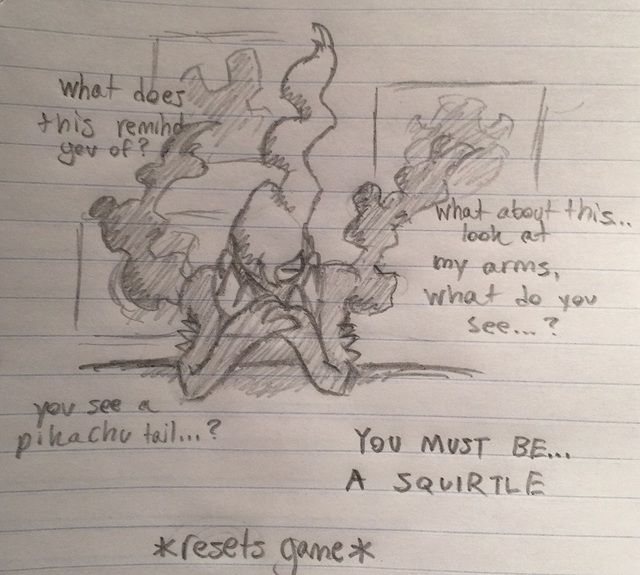 what does
this remind
you of?
what about this..
look at
my arms,
what do you
see...?
you see a
pikachu tail...?
YOU MUST BE...
A SQUIRTLE
*resets game*